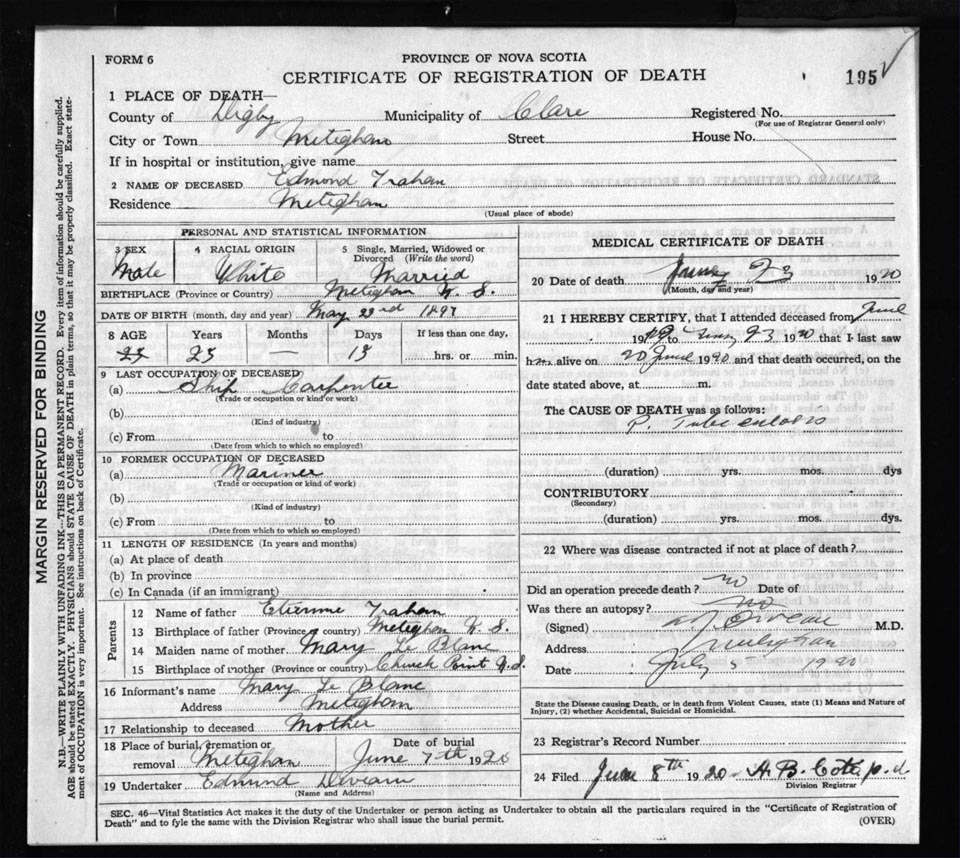 FORM 6
PROVINCE OF NOVA SCOTIA
CERTIFICATE OF REGISTRATION OF DEATH
195
1 PLACE OF DEATH—
County of Digby Municipality of Clare Registered No.
(For use of Registrar General only)
City or Town Meteghan Street House No.
If in hospital or institution, give name
2 NAME OF DECEASED Edmond Trahan
Residence Meteghan
(Usual place of abode)
PERSONAL AND STATISTICAL INFORMATION
3 SEX 4 RACIAL ORIGIN 5 Single, Married, Widowed or
Divorced (Write the word)
Male White Married
BIRTHPLACE (Province or Country) Meteghan N. S.
DATE OF BIRTH (month, day and year) May 23rd 1897
8 AGE Years Months Days If less than one day,
23 — 13 hrs. or min.
9 LAST OCCUPATION OF DECEASED
(a) Ship Carpenter
(Trade or occupation or kind or work)
(b)
(Kind of industry)
(c) From to
(Date from which to which so employed)
10 FORMER OCCUPATION OF DECEASED
(a) Mariner
(Trade or occupation or kind of work)
(b)
(Kind of industry)
(c) From to
(Date from which to which so employed)
11 LENGTH OF RESIDENCE (In years and months)
(a) At place of death
(b) In province
(c) In Canada (if an immigrant)
Parents
12 Name of father Etienne Trahan
13 Birthplace of father (Province or country) Meteghan N. S.
14 Maiden name of mother Mary Le Blanc
15 Birthplace of mother (Province or country) Church Point N.S.
16 Informant's name Mary Le Blanc
Address Meteghan
17 Relationship to deceased Mother
18 Place of burial, cremation or Date of burial
removal Meteghan June 7th 1920
19 Undertaker Edmund Deveau
(Name and Address)
MEDICAL CERTIFICATE OF DEATH
20 Date of death 23 1920
(Month, day and year)
21 I HEREBY CERTIFY, that I attended deceased from June
19 to 23 1920 that I last saw
him alive on 20 June 1920 and that death occurred, on the
date stated above, at m.
The CAUSE OF DEATH was as follows:
P. Tuberculosis
(duration) yrs. mos. dys
CONTRIBUTORY
(Secondary)
(duration) yrs. mos. dys.
22 Where was disease contracted if not at place of death?
Did an operation precede death? no Date of
Was there an autopsy? no
(Signed) M.D.
Address Meteghan
Date July 5 1920
State the Disease causing Death, or in death from Violent Causes, state (1) Means and Nature of
Injury, (2) whether Accidental, Suicidal or Homicidal.
23 Registrar's Record Number
24 Filed June 8th 1920 A. B. Cotte p.d
Division Registrar
SEC. 46—Vital Statistics Act makes it the duty of the Undertaker or person acting as Undertaker to obtain all the particulars required in the "Certificate of Registration of
Death" and to fyle the same with the Division Registrar who shall issue the burial permit. (OVER)
MARGIN RESERVED FOR BINDING
N.B.—WRITE PLAINLY WITH UNFADING INK—THIS IS A PERMANENT RECORD. Every item of information should be carefully supplied.
AGE should be stated EXACTLY. PHYSICIANS should STATE CAUSE OF DEATH in plain terms, so that it may be properly classified. Exact state-
ment of OCCUPATION is very important. See instructions on back of Certificate.